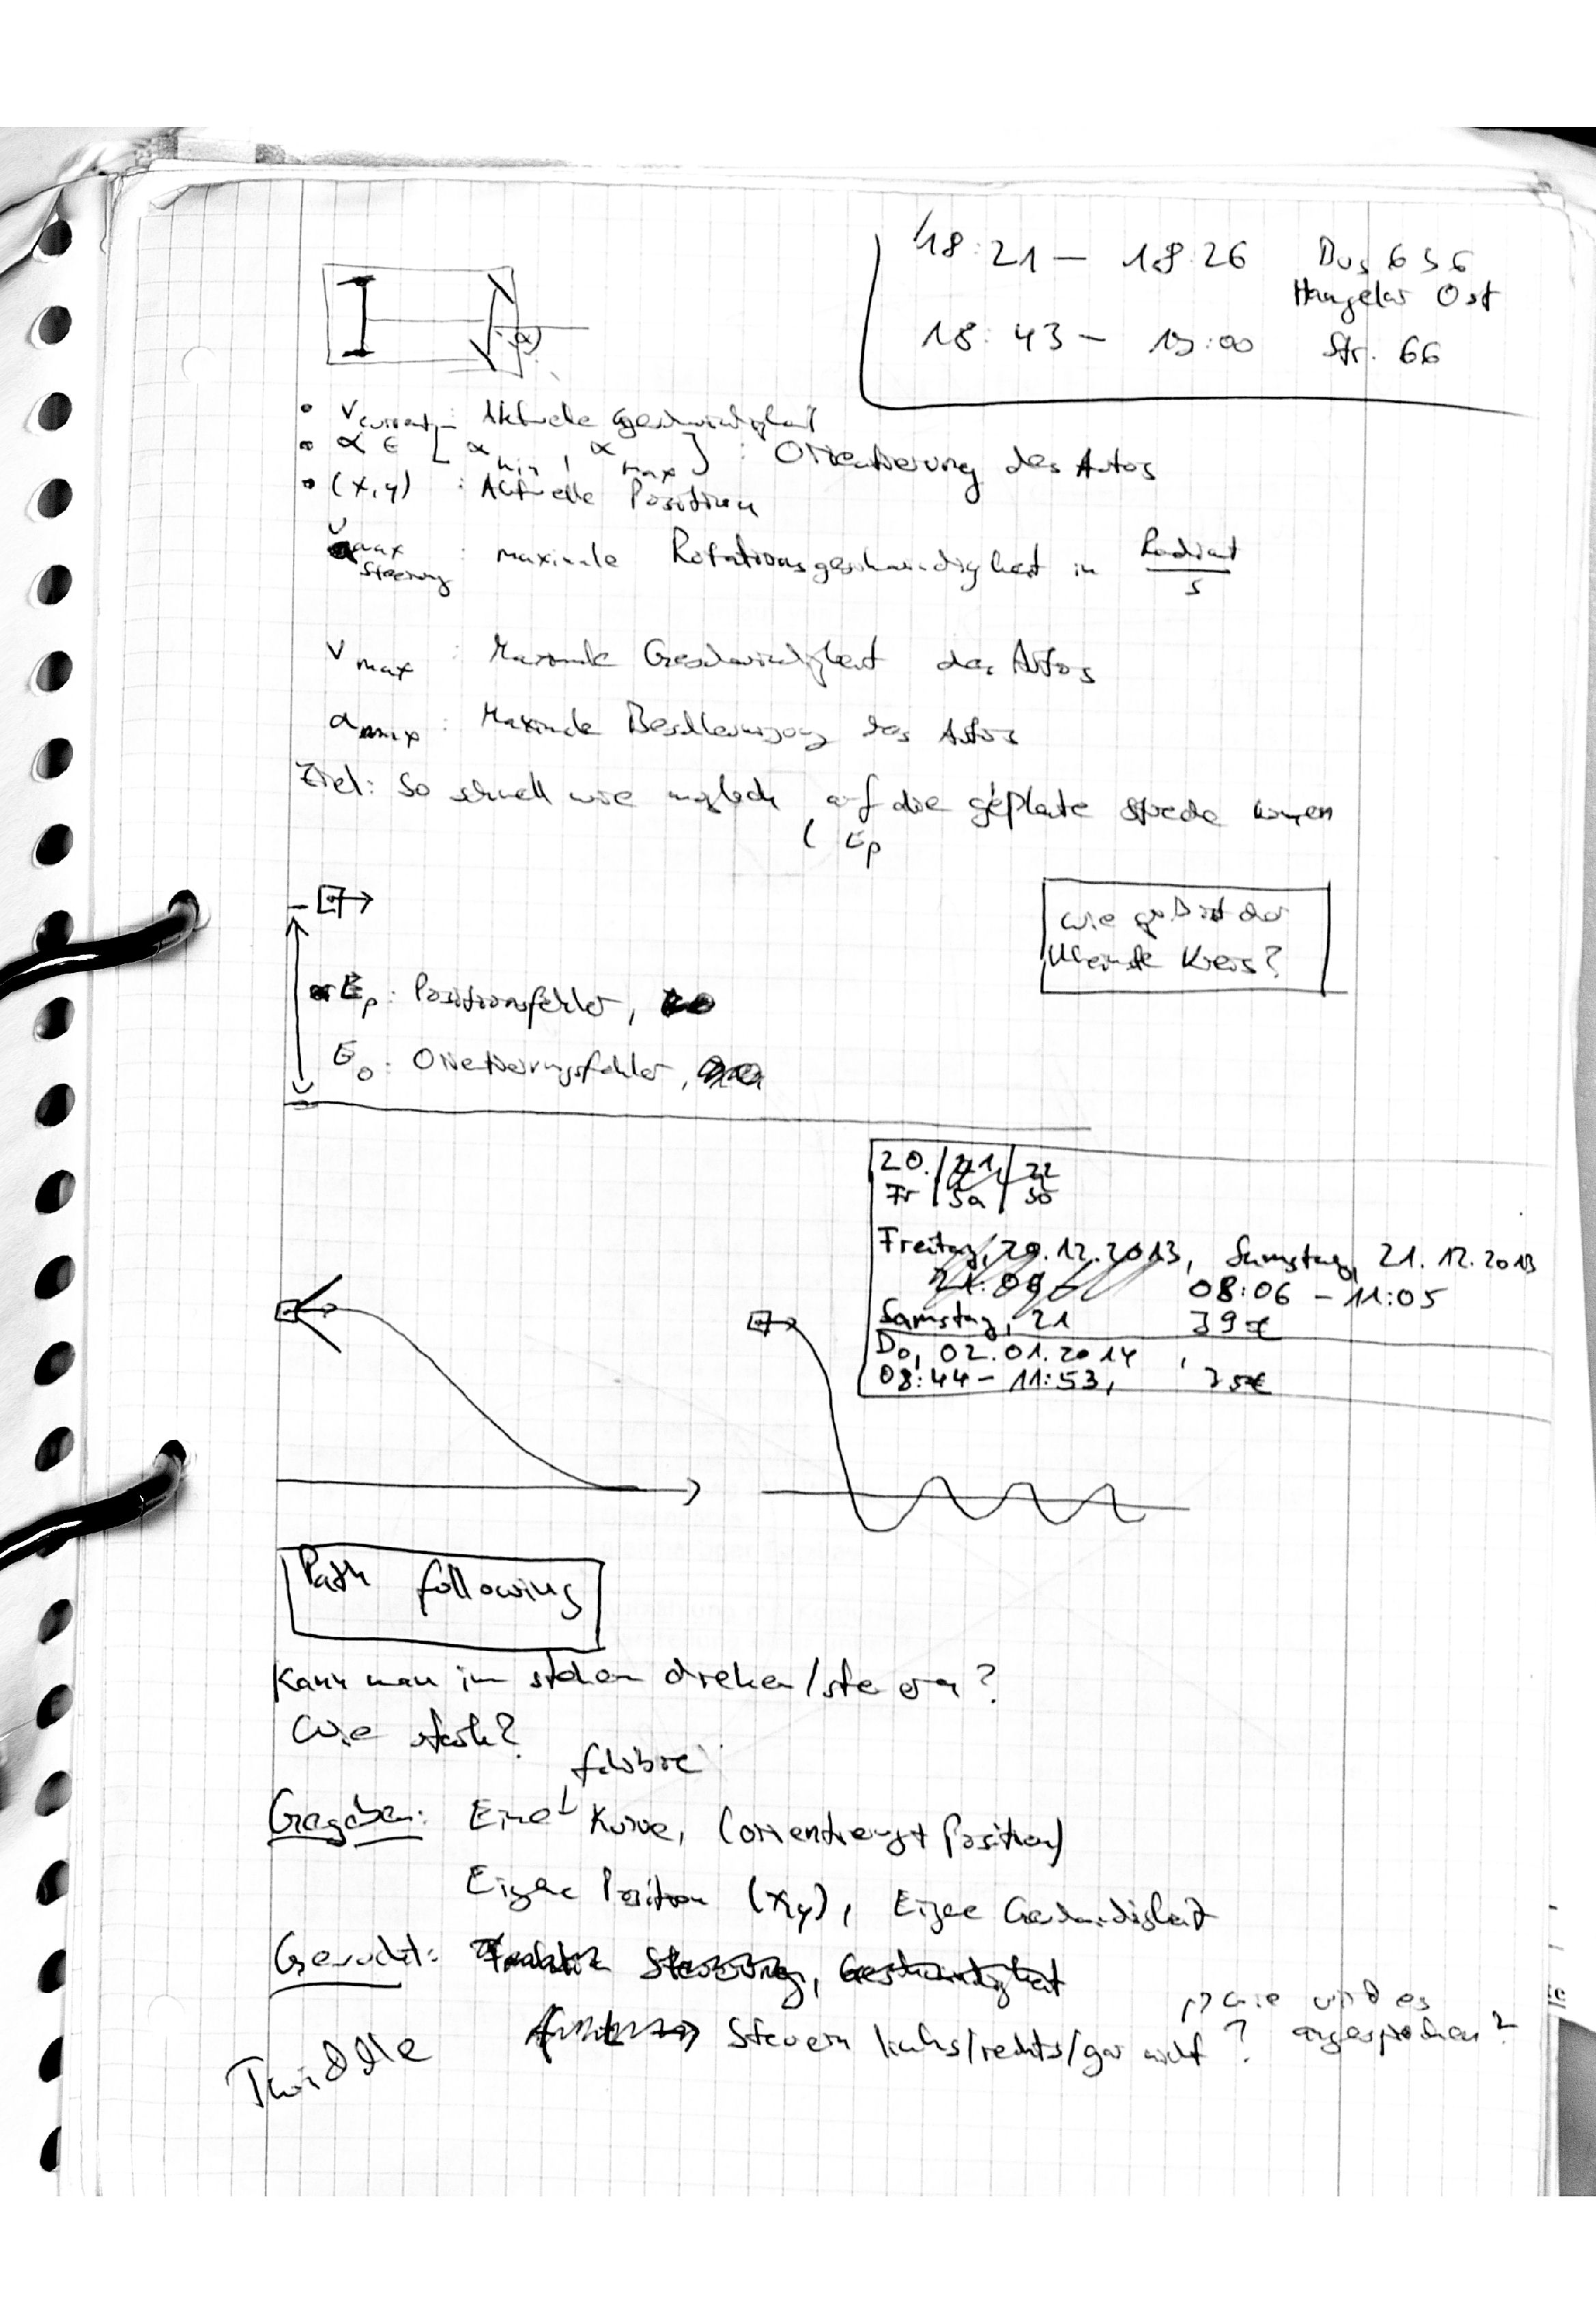 18:21 – 18:26 Bus 636
Hangelar Ost
18:43 – 19:00 Str. 66
α
• v_current: Aktuelle Geschwindigkeit
• α ∈ [α_min, α_max] : Orientierung des Autos
• (x,y) : Aktuelle Position
v_max steering : maximale Rotationsgeschwindigkeit in Radiant/s
v_max : Maximale Geschwindigkeit des Autos
a_max : Maximale Beschleunigung des Autos
Ziel: So schnell wie möglich auf die geplante Strecke kommen
( E_p
Wie groß ist der
kleinste Kreis?
E_p: Positionsfehler,
E_o: Orientierungsfehler,
20. / 21. / 22
Fr / Sa / So
Freitag, 20.12.2013, Samstag, 21.12.2013
21:09 – 08:06 – 11:05
Samstag, 21 39€
Do, 02.01.2014,
08:44 – 11:53, 35€
Path following
Kann man im stehen drehen/steuern?
Wie stark?
fahrbare
Gegeben: Eine Kurve, (orientierung + Position)
Eigene Position (x,y), Eigene Geschwindigkeit
Gesucht: Funktion Steuerung, Geschwindigkeit
→ wie wird es
Steuern links/rechts/gar nicht? angesprochen?
Twiddle